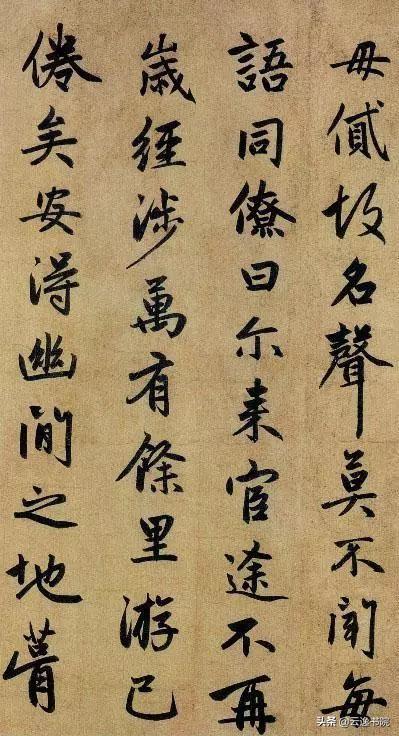 毋貸故名聲莫不聞每
語同僚曰尓来官途不再
歲經涉萬有餘里游已
倦矣安得幽閒之地葺
头条 @云逸书院